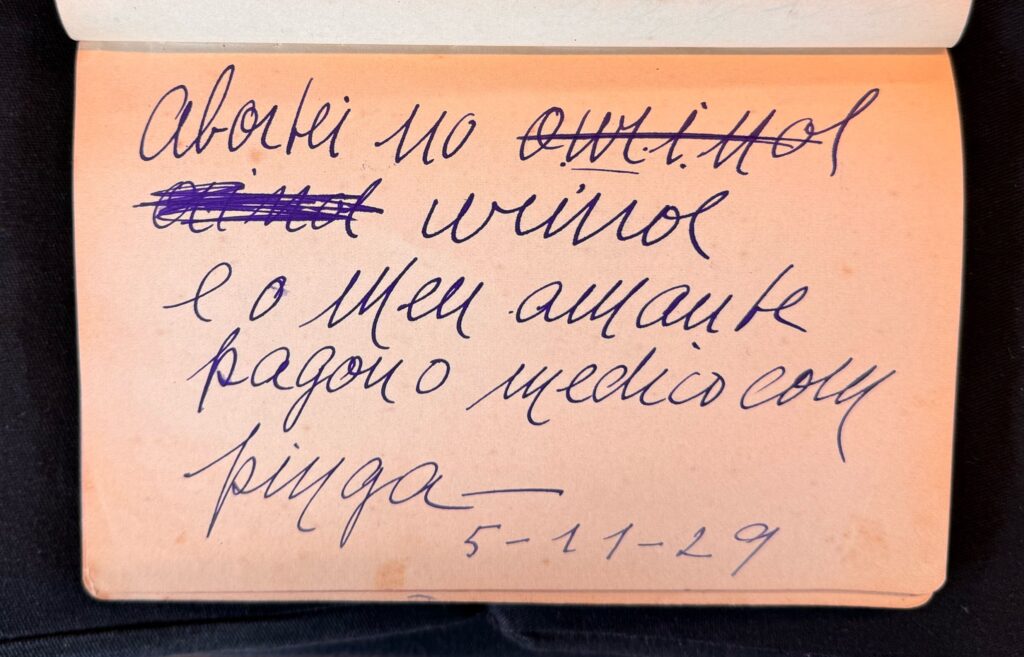 abortei no ourinol
orinol urinol
e o meu amante
pagou o medico com
pinga —
5-11-29